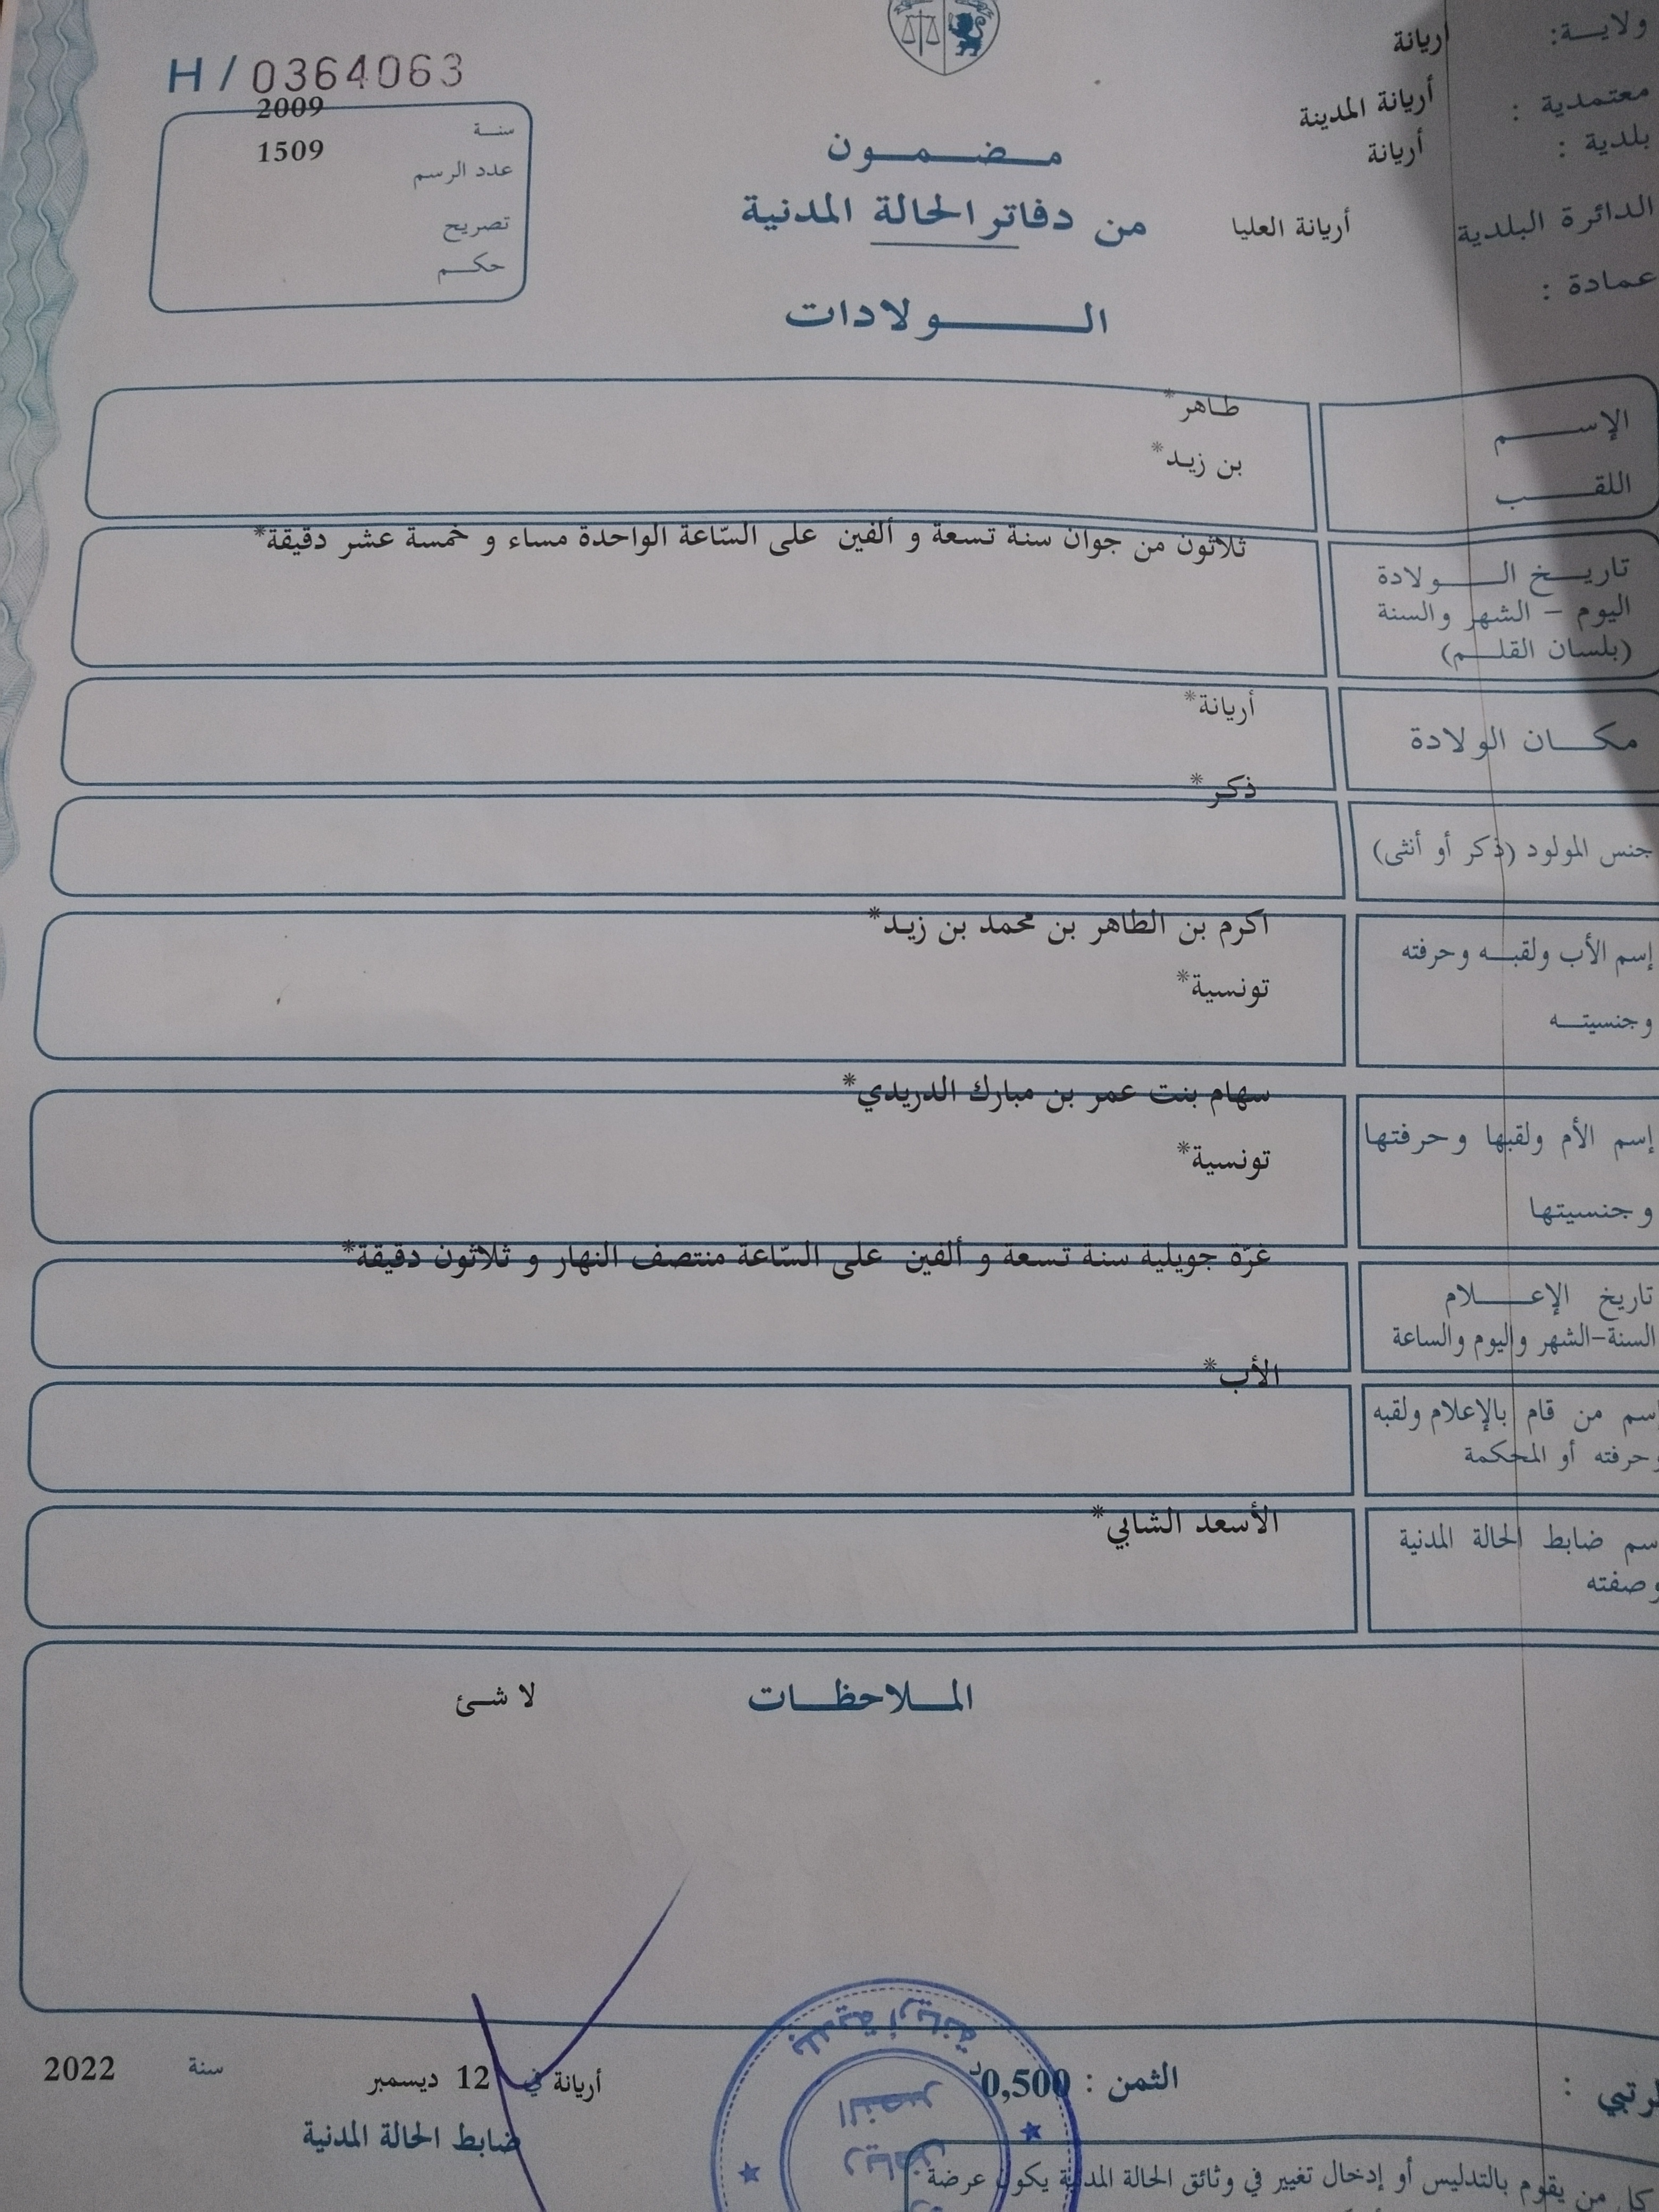 ولاية: اريانة
معتمدية : أريانة المدينة
بلدية : أريانة
الدائرة البلدية أريانة العليا
عمادة :
H / 0364063
سنة 2009
عدد الرسم 1509
تصريح
حكم
مضمون
من دفاتر الحالة المدنية
الولادات
الإسم طاهر*
اللقب بن زيد*
ثلاثون من جوان سنة تسعة و ألفين على السّاعة الواحدة مساء و خمسة عشر دقيقة*
تاريخ الولادة
اليوم – الشهر والسنة
(بلسان القلم)
أريانة*
مكان الولادة
ذكر*
جنس المولود (ذكر أو أنثى)
اكرم بن الطاهر بن محمد بن زيد*
إسم الأب ولقبه وحرفته
تونسية*
وجنسيته
سهام بنت عمر بن مبارك الدريدي*
إسم الأم ولقبها وحرفتها
تونسية*
وجنسيتها
غرّة جويلية سنة تسعة و ألفين على السّاعة منتصف النهار و ثلاثون دقيقة*
تاريخ الإعلام
السنة–الشهر واليوم والساعة
الأب*
إسم من قام بالإعلام ولقبه
وحرفته أو المحكمة
الأسعد الشابي*
سم ضابط الحالة المدنية
وصفته
الملاحظات لا شئ
الثمن : 0,500د
أريانة في 12 ديسمبر سنة 2022
ضابط الحالة المدنية
بلدية أريانة
النصر
رياض
كل من يقوم بالتدليس أو إدخال تغيير في وثائق الحالة المدنية يكون عرضة